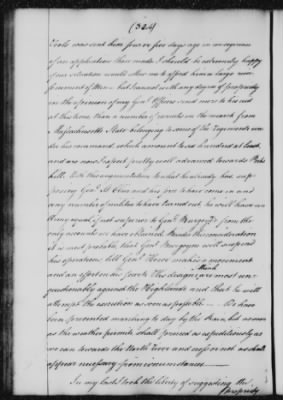 (324)
Tools was sent him four or five days ago in consequence
of an application then made. I should be extremely happy
if our situation would allow me to afford him a large rein-
forcement of Men, but I cannot with any degree of propriety
in the opinion of my Genl Officers send more to his aid
at this time than a number of recruits on the march from
Massachusetts State belonging to some of the Regiments un-
der his command, which amount to six hundred at least
and are now I expect pretty well advanced towards Peeks
kill. With this augmentation to what he already had, sup-
posing Genl St Clair and his to have come in and
any number of militia to have turned out, he will have an
Army equal if not superior to Genl Burgoyne's from the
only accounts we have obtained. Besides this consideration
it is most probable that Genl Burgoyne will suspend
his operations till Genl Howe makes a movement
and an effort on the South. This design I think most un-
questionably against the Highlands and that he will
attempt the execution as soon as possible. — We have
been prevented marching to day by the Rain, but as soon
as the weather permits shall proceed as expeditiously as
we can towards the North River and cross or not as shall
appear necessary from circumstances —
In my last I took the liberty of suggesting the
propriety